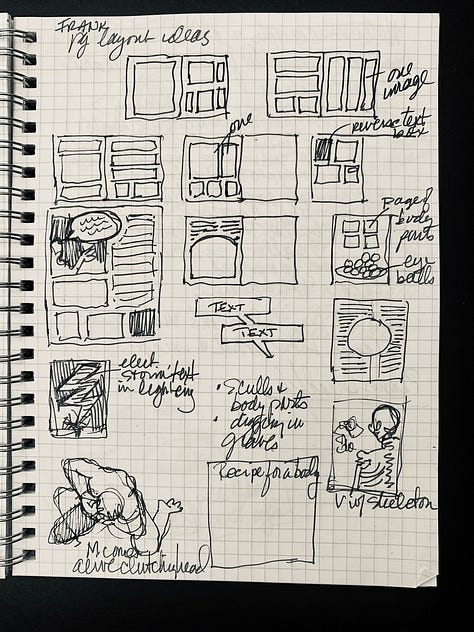 FRANK
pg layout ideas
one
image
one
reverse text
box
page of
body
parts
eye
balls
TEXT
TEXT
elect
storm text
in lightning
• Sculls &
body parts
• digging in
graves
Recipe for a body
V w/ skeleton
M comes
alive clutching head